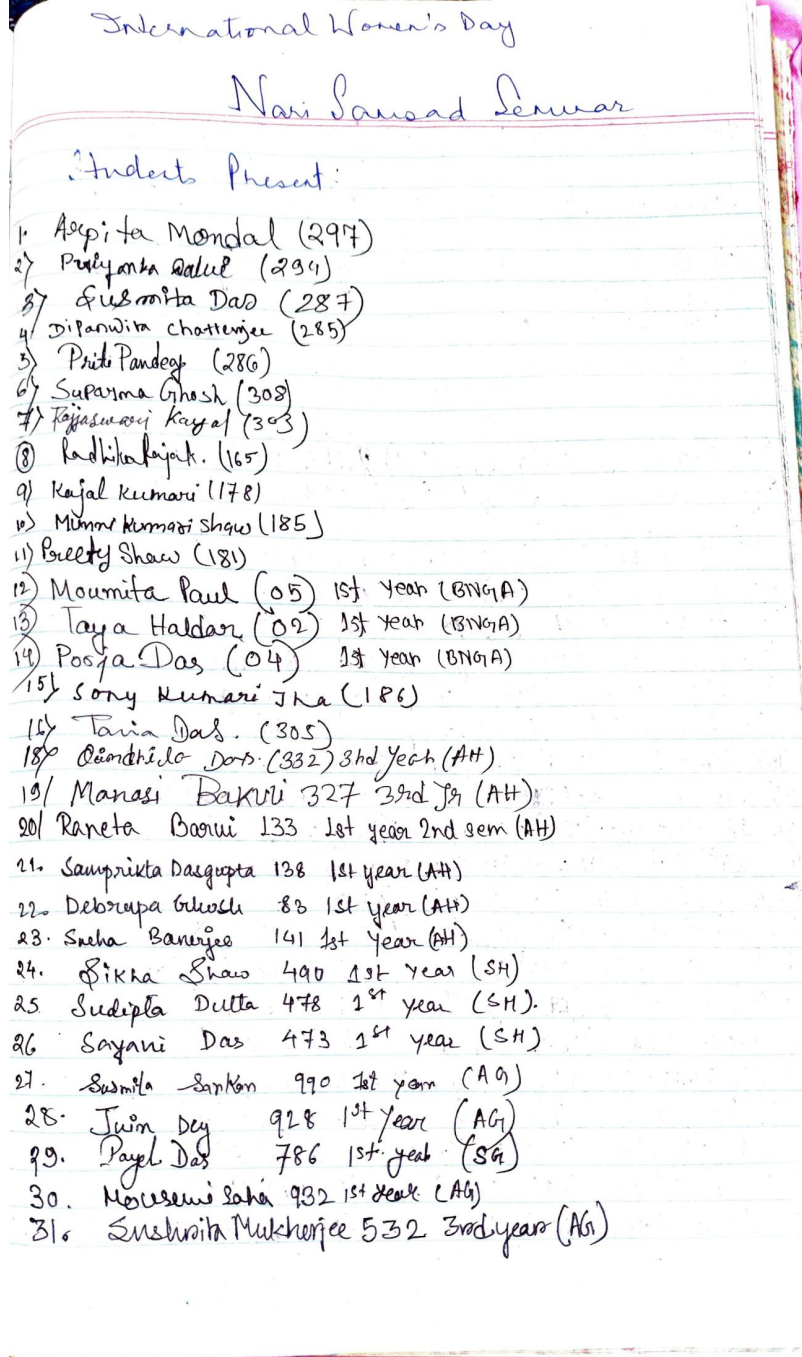 International Women's Day
Nari Sansad Seminar
Students Present:
1. Arpita Mondal (297)
2) Priyanka Dalui (294)
3) Susmita Das (287)
4/ Dipanwita Chatterjee (285)
5) Priti Pandey (286)
6) Suparna Ghosh (308)
7) Rajaswari Kayal (303)
8 Radhika Rajak. (165)
9) Kajal Kumari (178)
10) Munni Kumari Shaw (185)
11) Preety Shaw (181)
12) Moumita Paul (05) 1st year (BNGA)
13) Taya Haldar (02) 1st year (BNGA)
14) Pooja Das (04) 1st year (BNGA)
15) Sony Kumari Jha (186)
16) Tania Das. (305)
18) Das. (332) 3rd year (AH)
19/ Manasi Bakuri 327 3rd Yr (AH)
20/ Raneta Barui 133 1st year 2nd sem (AH)
21. Samprikta Dasgupta 138 1st year (AH)
22. Debrupa Ghosh 83 1st year (AH)
23. Sneha Banerjee 141 1st year (AH)
24. Sikha Shaw 490 1st year (SH)
25 Sudipta Dutta 478 1st year (SH).
26 Sayani Das 473 1st year (SH)
27. Susmita Sarkar 990 1st year (AG)
28. Juin Dey 928 1st year (AG)
29. Payel Das 786 1st year (SG)
30. Mousumi Saha 932 1st year (AG)
31. Sushmita Mukherjee 532 3rd year (AG)